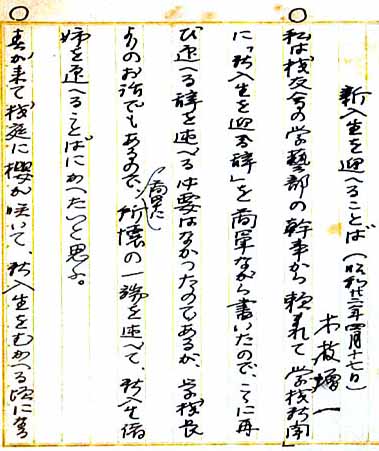 新入生を迎へることば(昭和廿二年四月十七日)
木枝増一
私は校友会の学藝部の幹事から頼まれて学校新聞
に「新入生を迎る辞」を簡単ながら書いたので、こゝに再
び迎へる辞を述べる必要はなかつたのであるが、学校長
よりのお話でもあるので、簡単に所懐の一端を述べて、新入生諸
姉を迎へることばにかへたいと思ふ。
春が来て校庭に櫻が咲いて、新入生をむかへる頃に